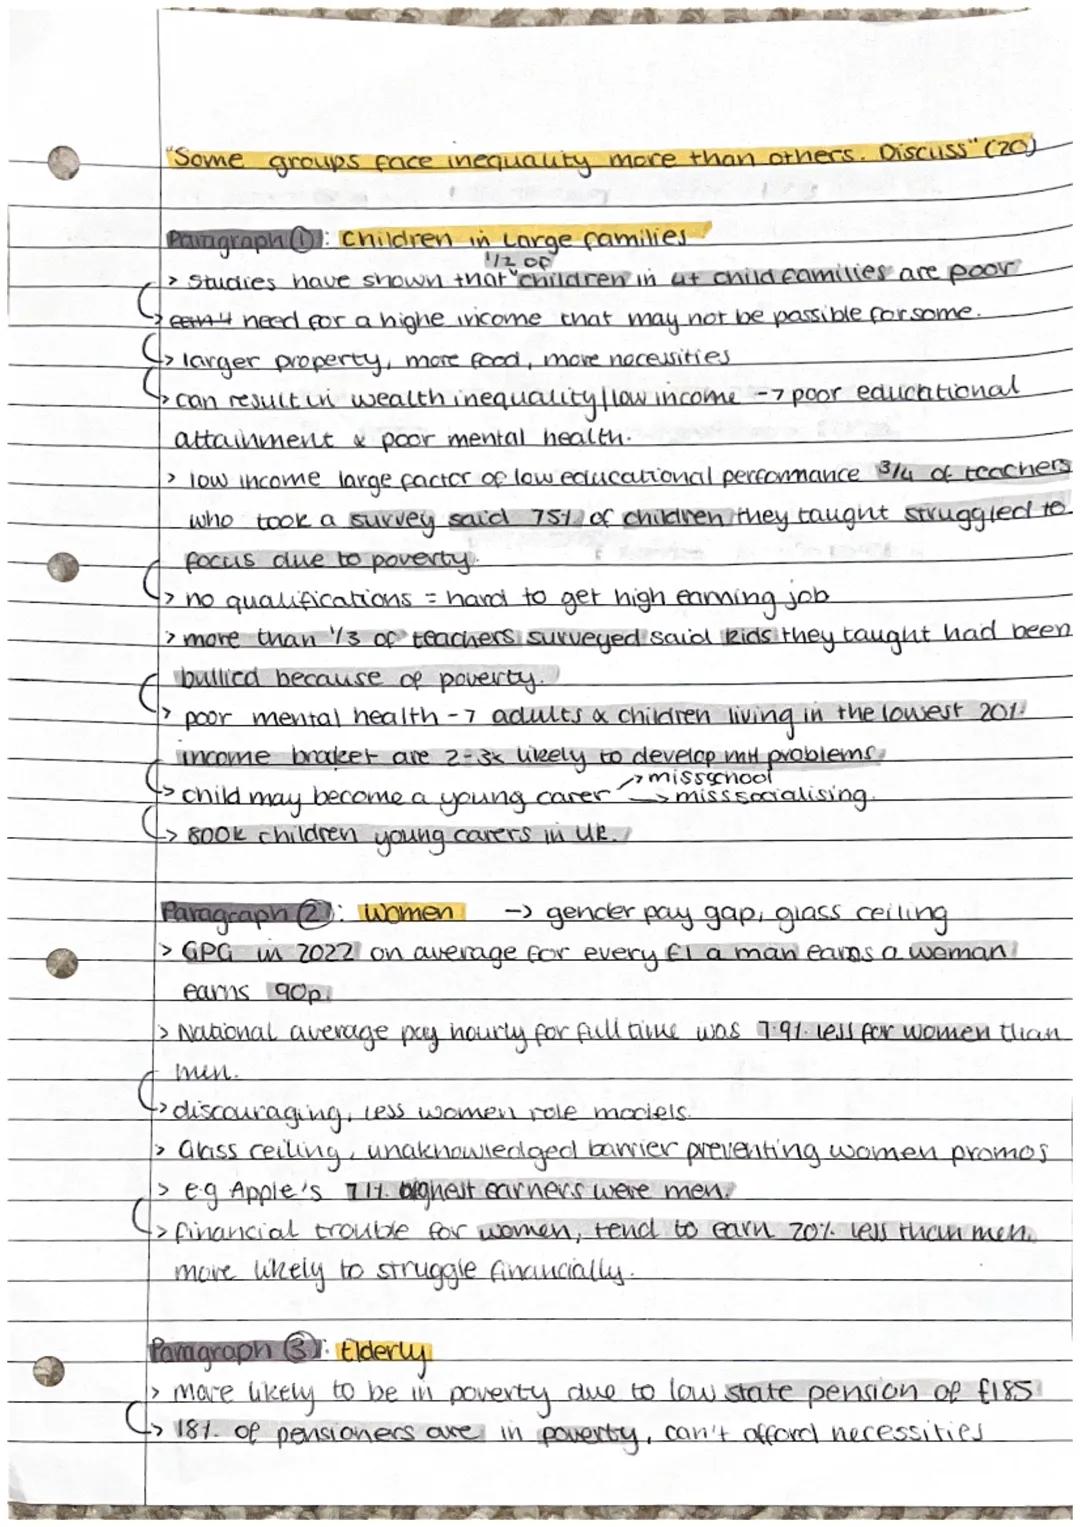 "Some groups face inequality more than others. Discuss" (20)
Paragraph ①: Children in Large families
1/2 of
> Studies have shown that children in 4+ child families are poor
> earn 4 need for a highe income that may not be possible for some.
> larger property, more food, more necessities
> can result in wealth inequality/low income -> poor educational
attainment & poor mental health.
> low income large factor of low educational performance 3/4 of teachers
who took a survey said 75% of children they taught struggled to
focus due to poverty.
> no qualifications = hard to get high earning job
> more than 1/3 of teachers surveyed said kids they taught had been
bullied because of poverty.
> poor mental health -> adults & children living in the lowest 20%
income bracket are 2-3x likely to develop mH problems.
-> miss school
> child may become a young carer -> miss socialising.
> 800k children young carers in UK.
Paragraph ②: Women -> gender pay gap, glass ceiling
> GPG in 2022 on average for every £1 a man earns a woman
earns 90p.
> National average pay hourly for full time was 7.9% less for women than
men.
> discouraging, less women role models.
> Glass ceiling, unaknowledged barrier preventing women promos
> e.g Apple's 71% highest earners were men.
> financial trouble for women, tend to earn 20% less than men.
more likely to struggle financially.
Paragraph ③: Elderly
> more likely to be in poverty due to low state pension of £185
> 18% of pensioners are in poverty, can't afford necessities